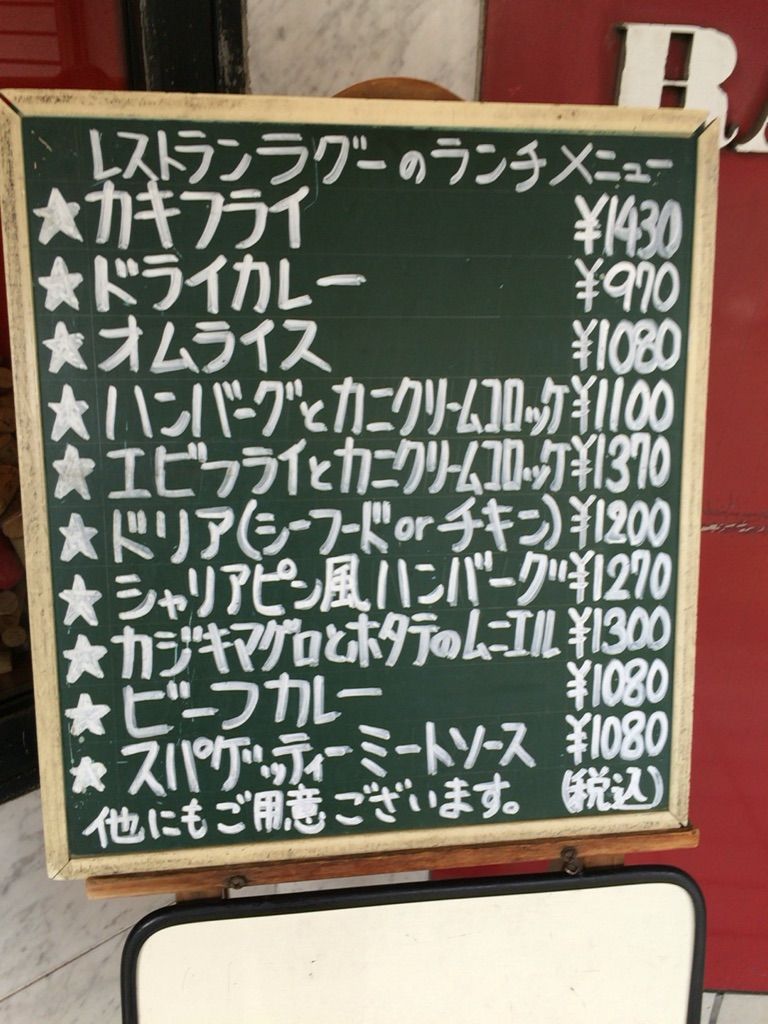 レストランラグーのランチメニュー
★カキフライ ¥1430
★ドライカレー ¥970
★オムライス ¥1080
★ハンバーグとカニクリームコロッケ ¥1100
★エビフライとカニクリームコロッケ ¥1370
★ドリア(シーフードorチキン) ¥1200
★シャリアピン風ハンバーグ ¥1270
★カジキマグロとホタテのムニエル ¥1300
★ビーフカレー ¥1080
★スパゲッティーミートソース ¥1080
他にもご用意ございます。 (税込)
R